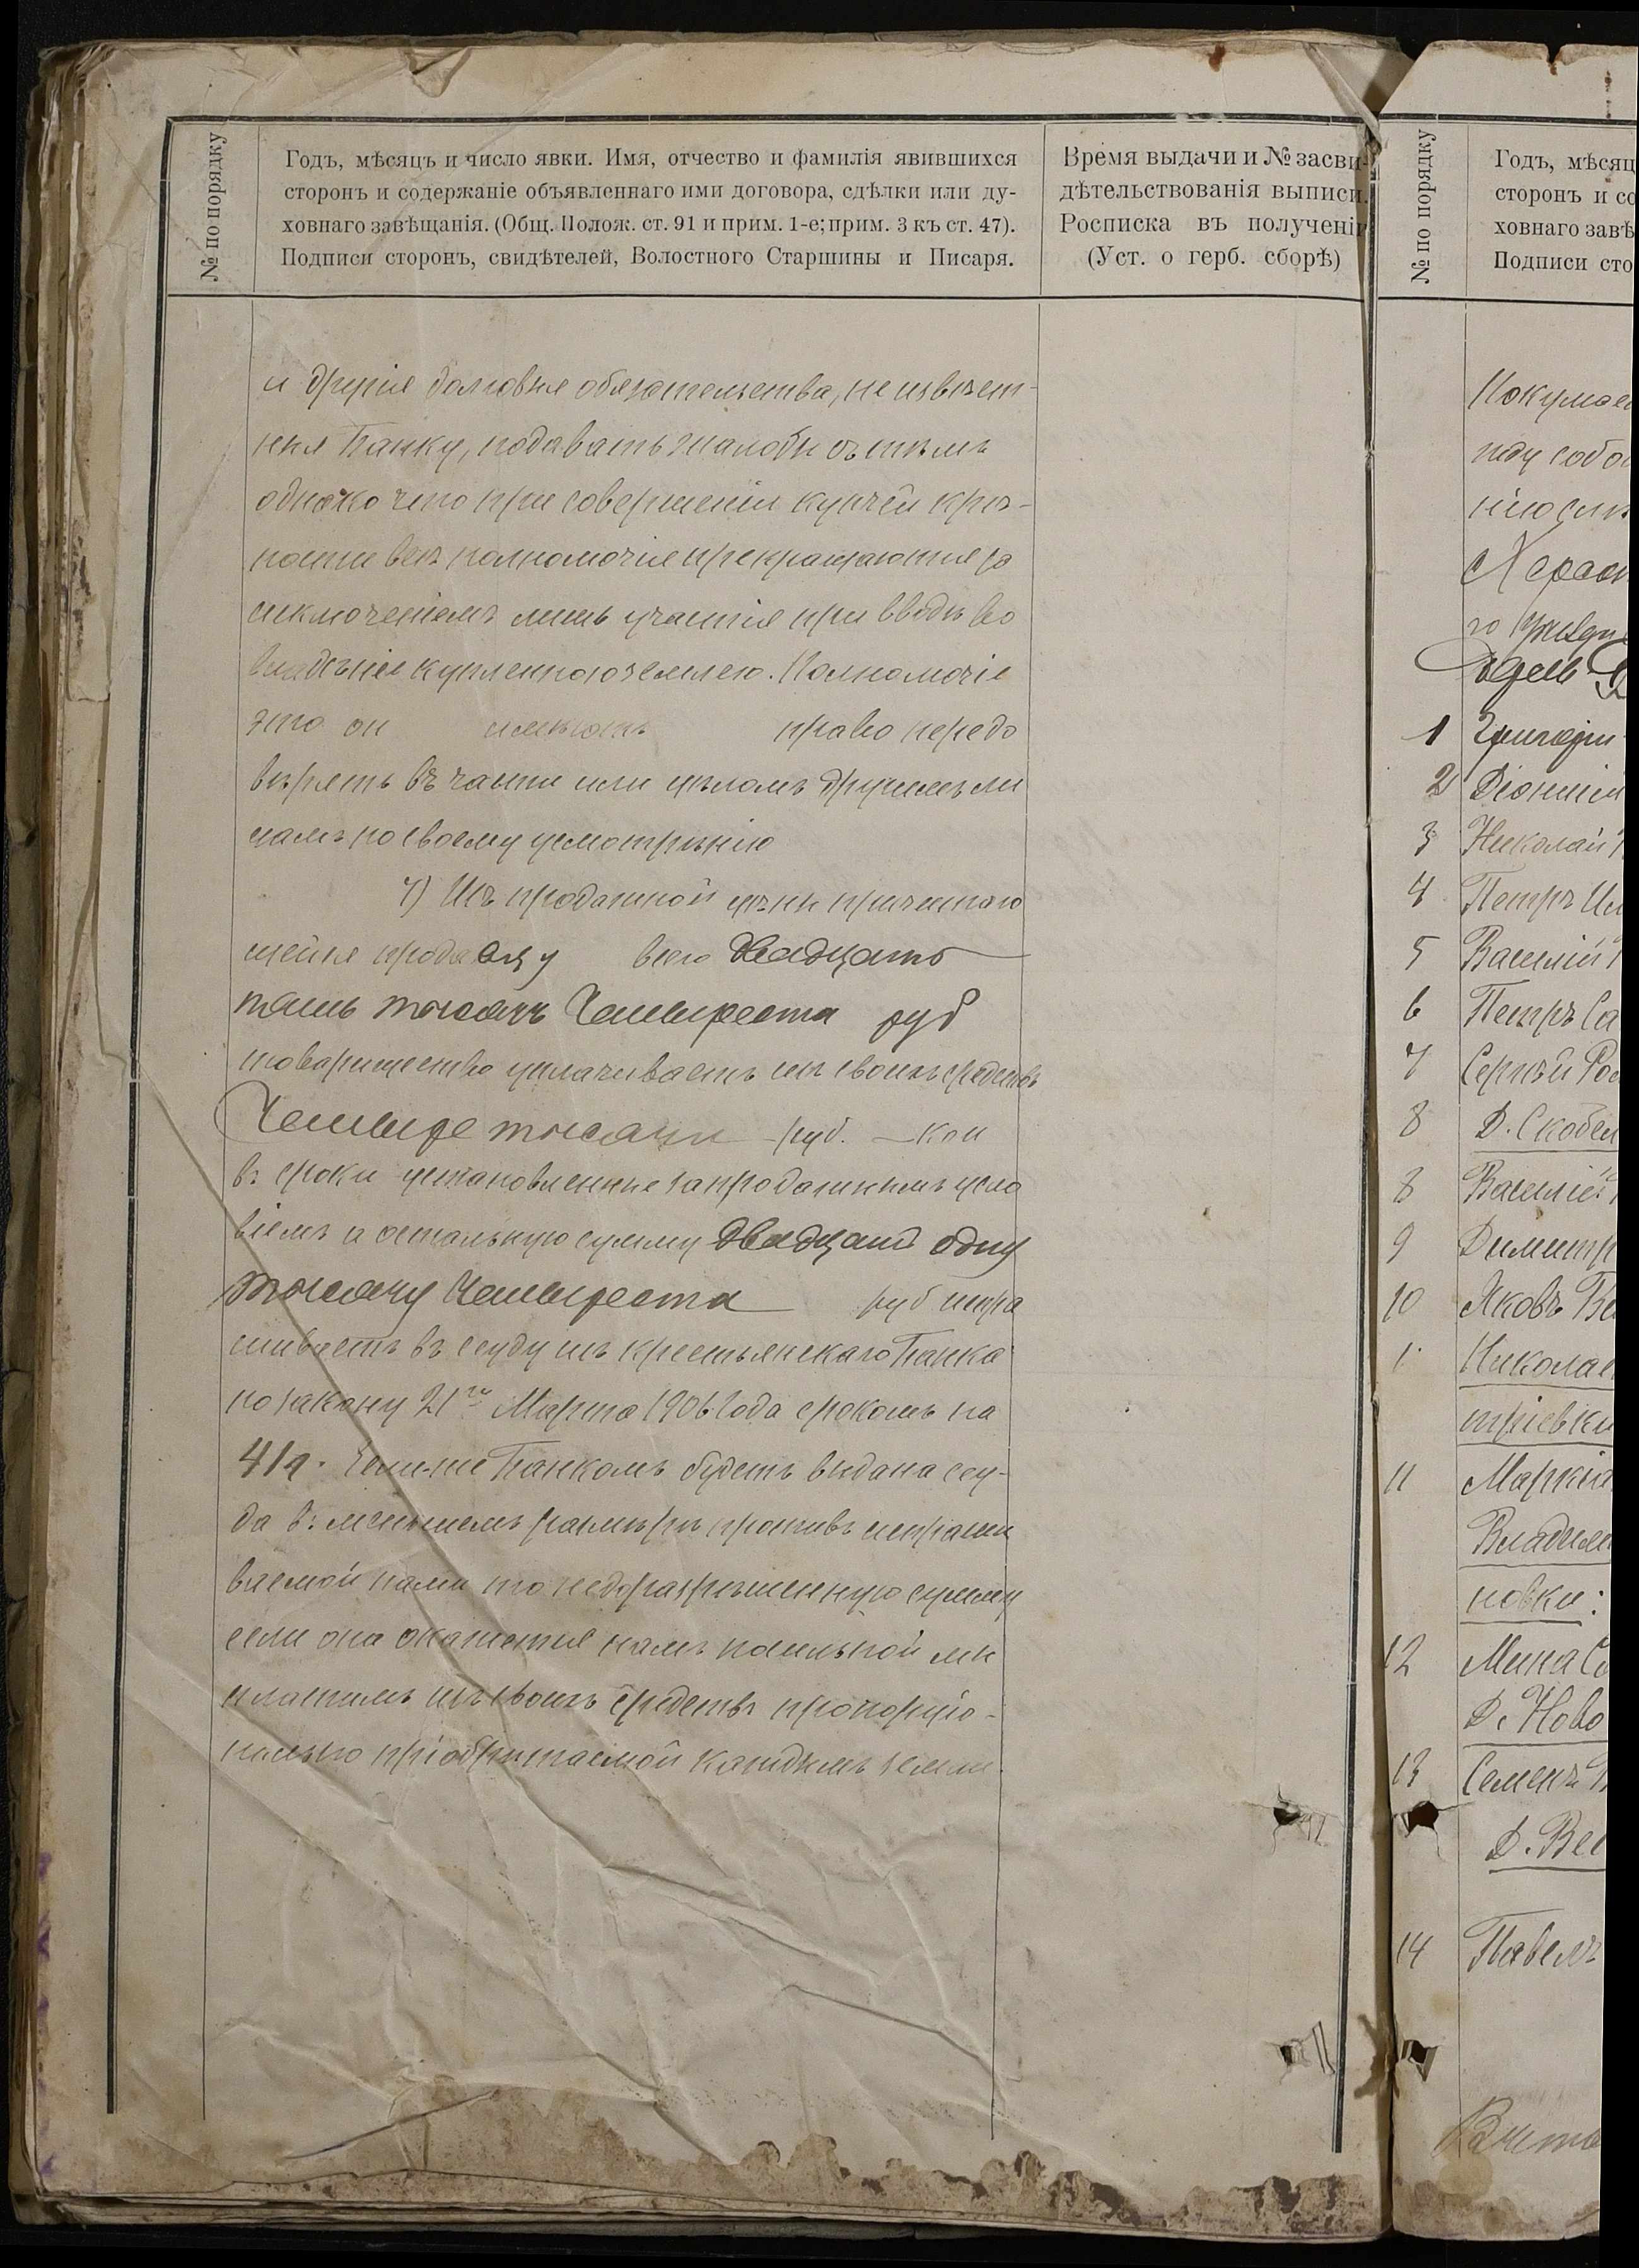 № по порядку
Годъ, мѣсяцъ и число явки. Имя, отчество и фамилія явившихся
сторонъ и содержаніе объявленнаго ими договора, сдѣлки или ду-
ховнаго завѣщанія. (Общ. Полож. ст. 91 и прим. 1-е; прим. 3 къ ст. 47).
Подписи сторонъ, свидѣтелей, Волостного Старшины и Писаря.
Время выдачи и № засви-
дѣтельствованія выписи.
Росписка въ полученіи
(Уст. о герб. сборѣ)
и другія долговыя обязательства, не извѣст-
ныя Банку, подавать жалобы съ тѣмъ
однако что при совершеніи купчей крѣ-
пости всѣ полномочія прекращаются за
исключеніемъ лишь участія при вводѣ во
владѣніе купленною землею. Полномочіе
это он имѣютъ право передо
вѣрять въ части или цѣломъ другимъ ли
цамъ по своему усмотрѣнію
7) Изъ продажной цѣны причитаю
щейся продавцу всего двадцать
пять тысячъ Четыреста руб
товарищество уплачиваетъ изъ своихъ средствъ
Четыре тысячи руб. — коп
въ сроки установленные запродажнымъ усло
віемъ а остальную сумму двадцать одну
тысячу Четыреста руб испра
шиваетъ въ ссуду изъ крестьянскаго Банка
по закону 21го Марта 1906 года срокомъ на
41 г. Если-же Банкомъ будетъ выдана ссу-
да въ меньшемъ размѣрѣ противъ испраши
ваемой нами то недоразрѣшенную сумму
если она окажется намъ посильной мы
платимъ изъ своихъ средствъ пропорціо-
нально пріобрѣтаемой каждымъ земли.
№ по порядку
Годъ, мѣсяц
сторонъ и со
ховнаго завѣ
Подписи сто
Покупае
жду собо
нію
Херсон
го
1 Григорій
2 Діонисій
3 Николай
4 Петръ
5 Василій
6 Петръ Са
7 Сергѣй Ро
8 Д. Скобел
8 Василій
9 Димитр
10 Яковъ Ве
1. Николае
тріевки
11 Маркіа
Владим
новки:
12 Мина Со
Д. Ново
13 Семенъ
Д. Вес
14 Павелъ